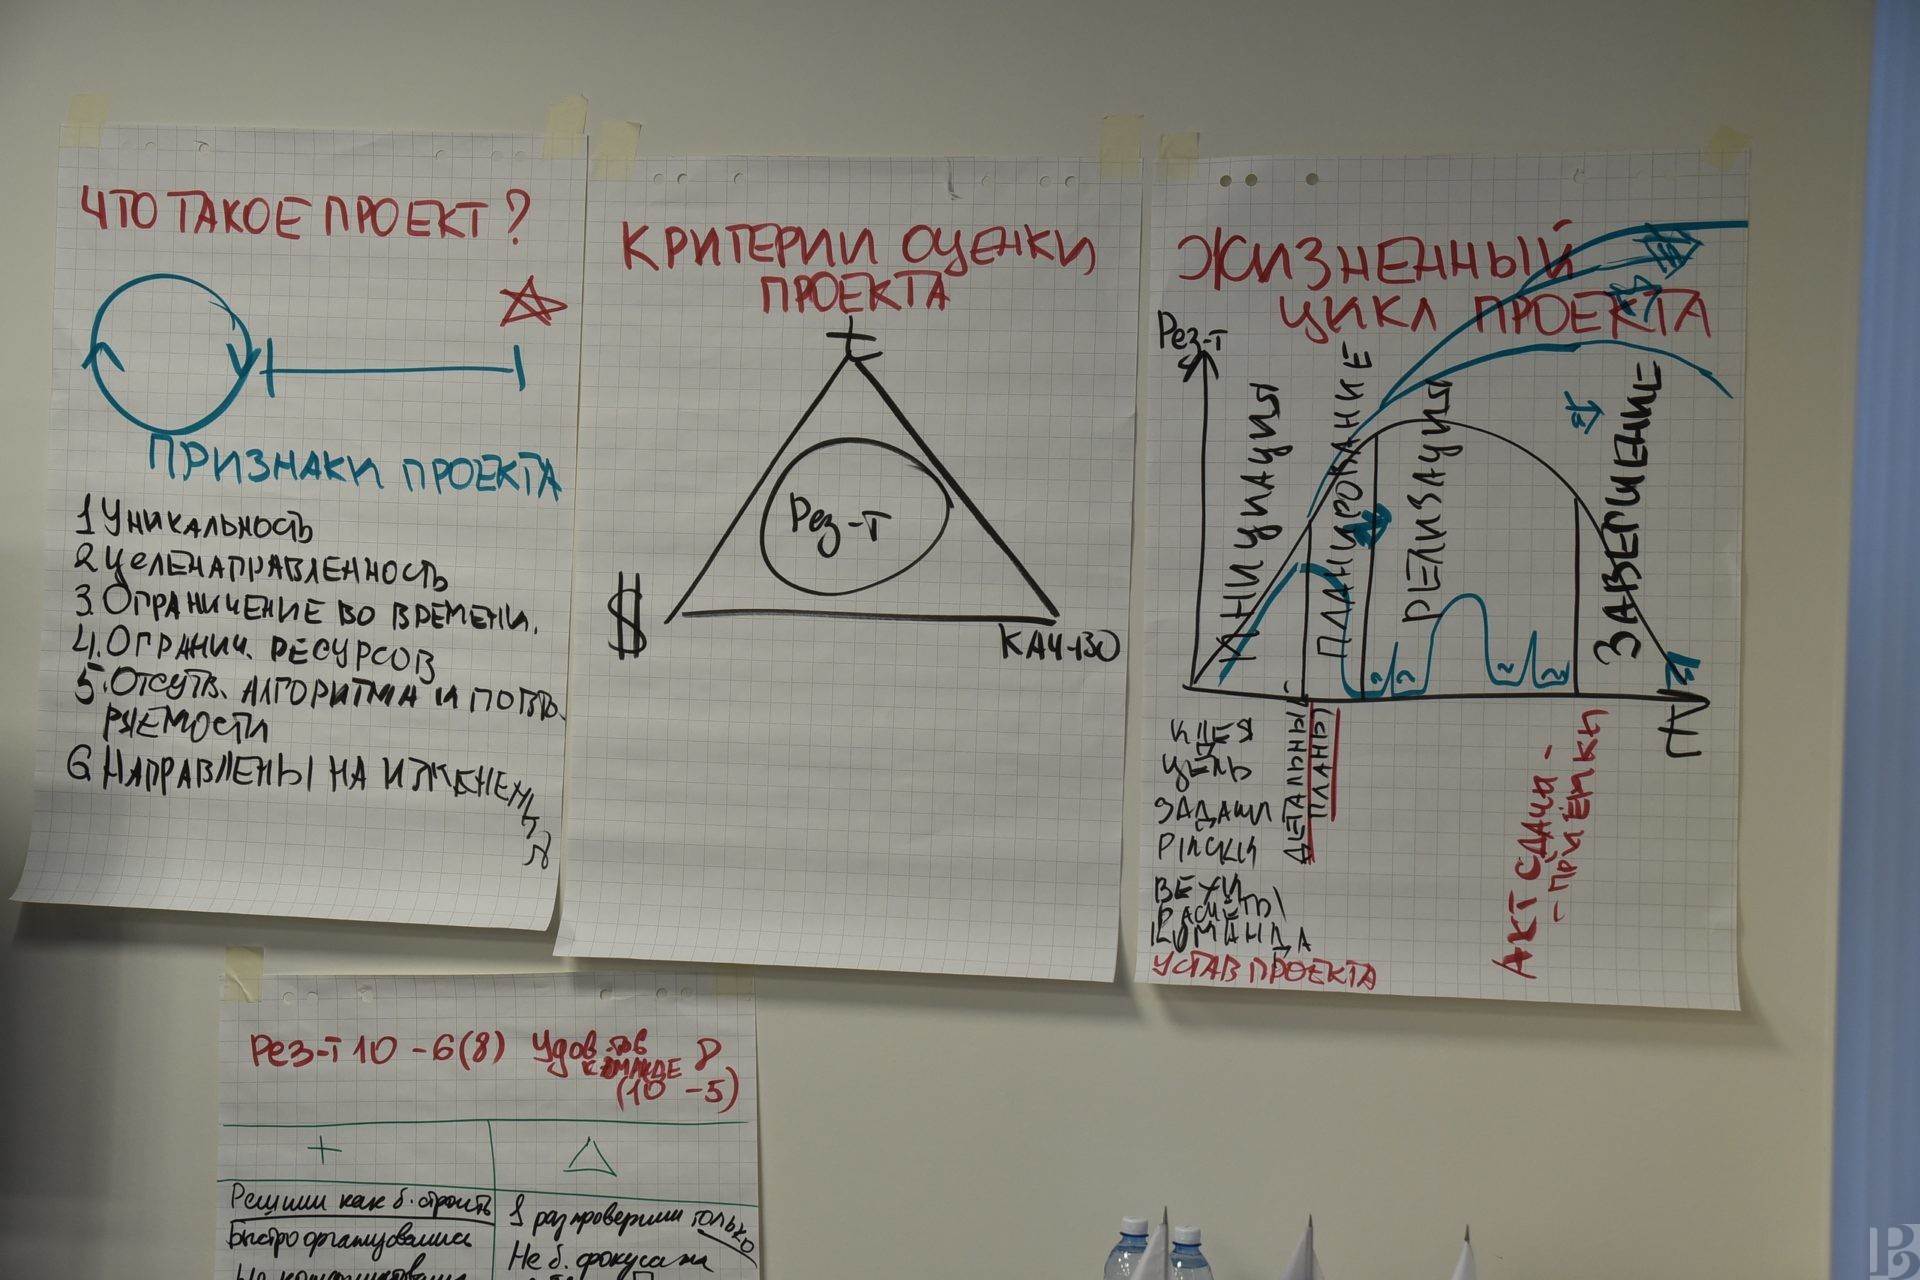 ЧТО ТАКОЕ ПРОЕКТ?
ПРИЗНАКИ ПРОЕКТА
1 УНИКАЛЬНОСТЬ
2 ЦЕЛЕНАПРАВЛЕННОСТЬ
3. ОГРАНИЧЕНИЕ ВО ВРЕМЕНИ.
4. ОГРАНИЧ. РЕСУРСОВ
5. ОТСУТВ. АЛГОРИТМА И ПОВТО-
РЯЕМОСТИ
6 НАПРАВЛЕНЫ НА
КРИТЕРИИ ОЦЕНКИ
ПРОЕКТА
t
Рез-т
$
КАЧ-ВО
ЖИЗНЕННЫЙ
ЦИКЛ ПРОЕКТА
Рез-т
ИНИЦИАЦИЯ
ПЛАНИРОВАНИЕ
РЕЛИЗАЦИЯ
ЗАВЕРШЕНИЕ
ИДЕЯ
ЦЕЛЬ
ЗАДАЧИ
РИСКИ
ВЕХИ
РАСЧЁТЫ
КОМАНДА
УСТАВ ПРОЕКТА
ДЕТАЛЬНЫЕ
ПЛАНЫ
АКТ СДАЧИ-
-ПРИЁМКИ
Рез-т 10 - 6(8) Удов-тв 8
КОМАНДЕ
(10 - 5)
+
Решили как б. строить
Быстро организовались
1 раз проверили только
Не б. фокуса на